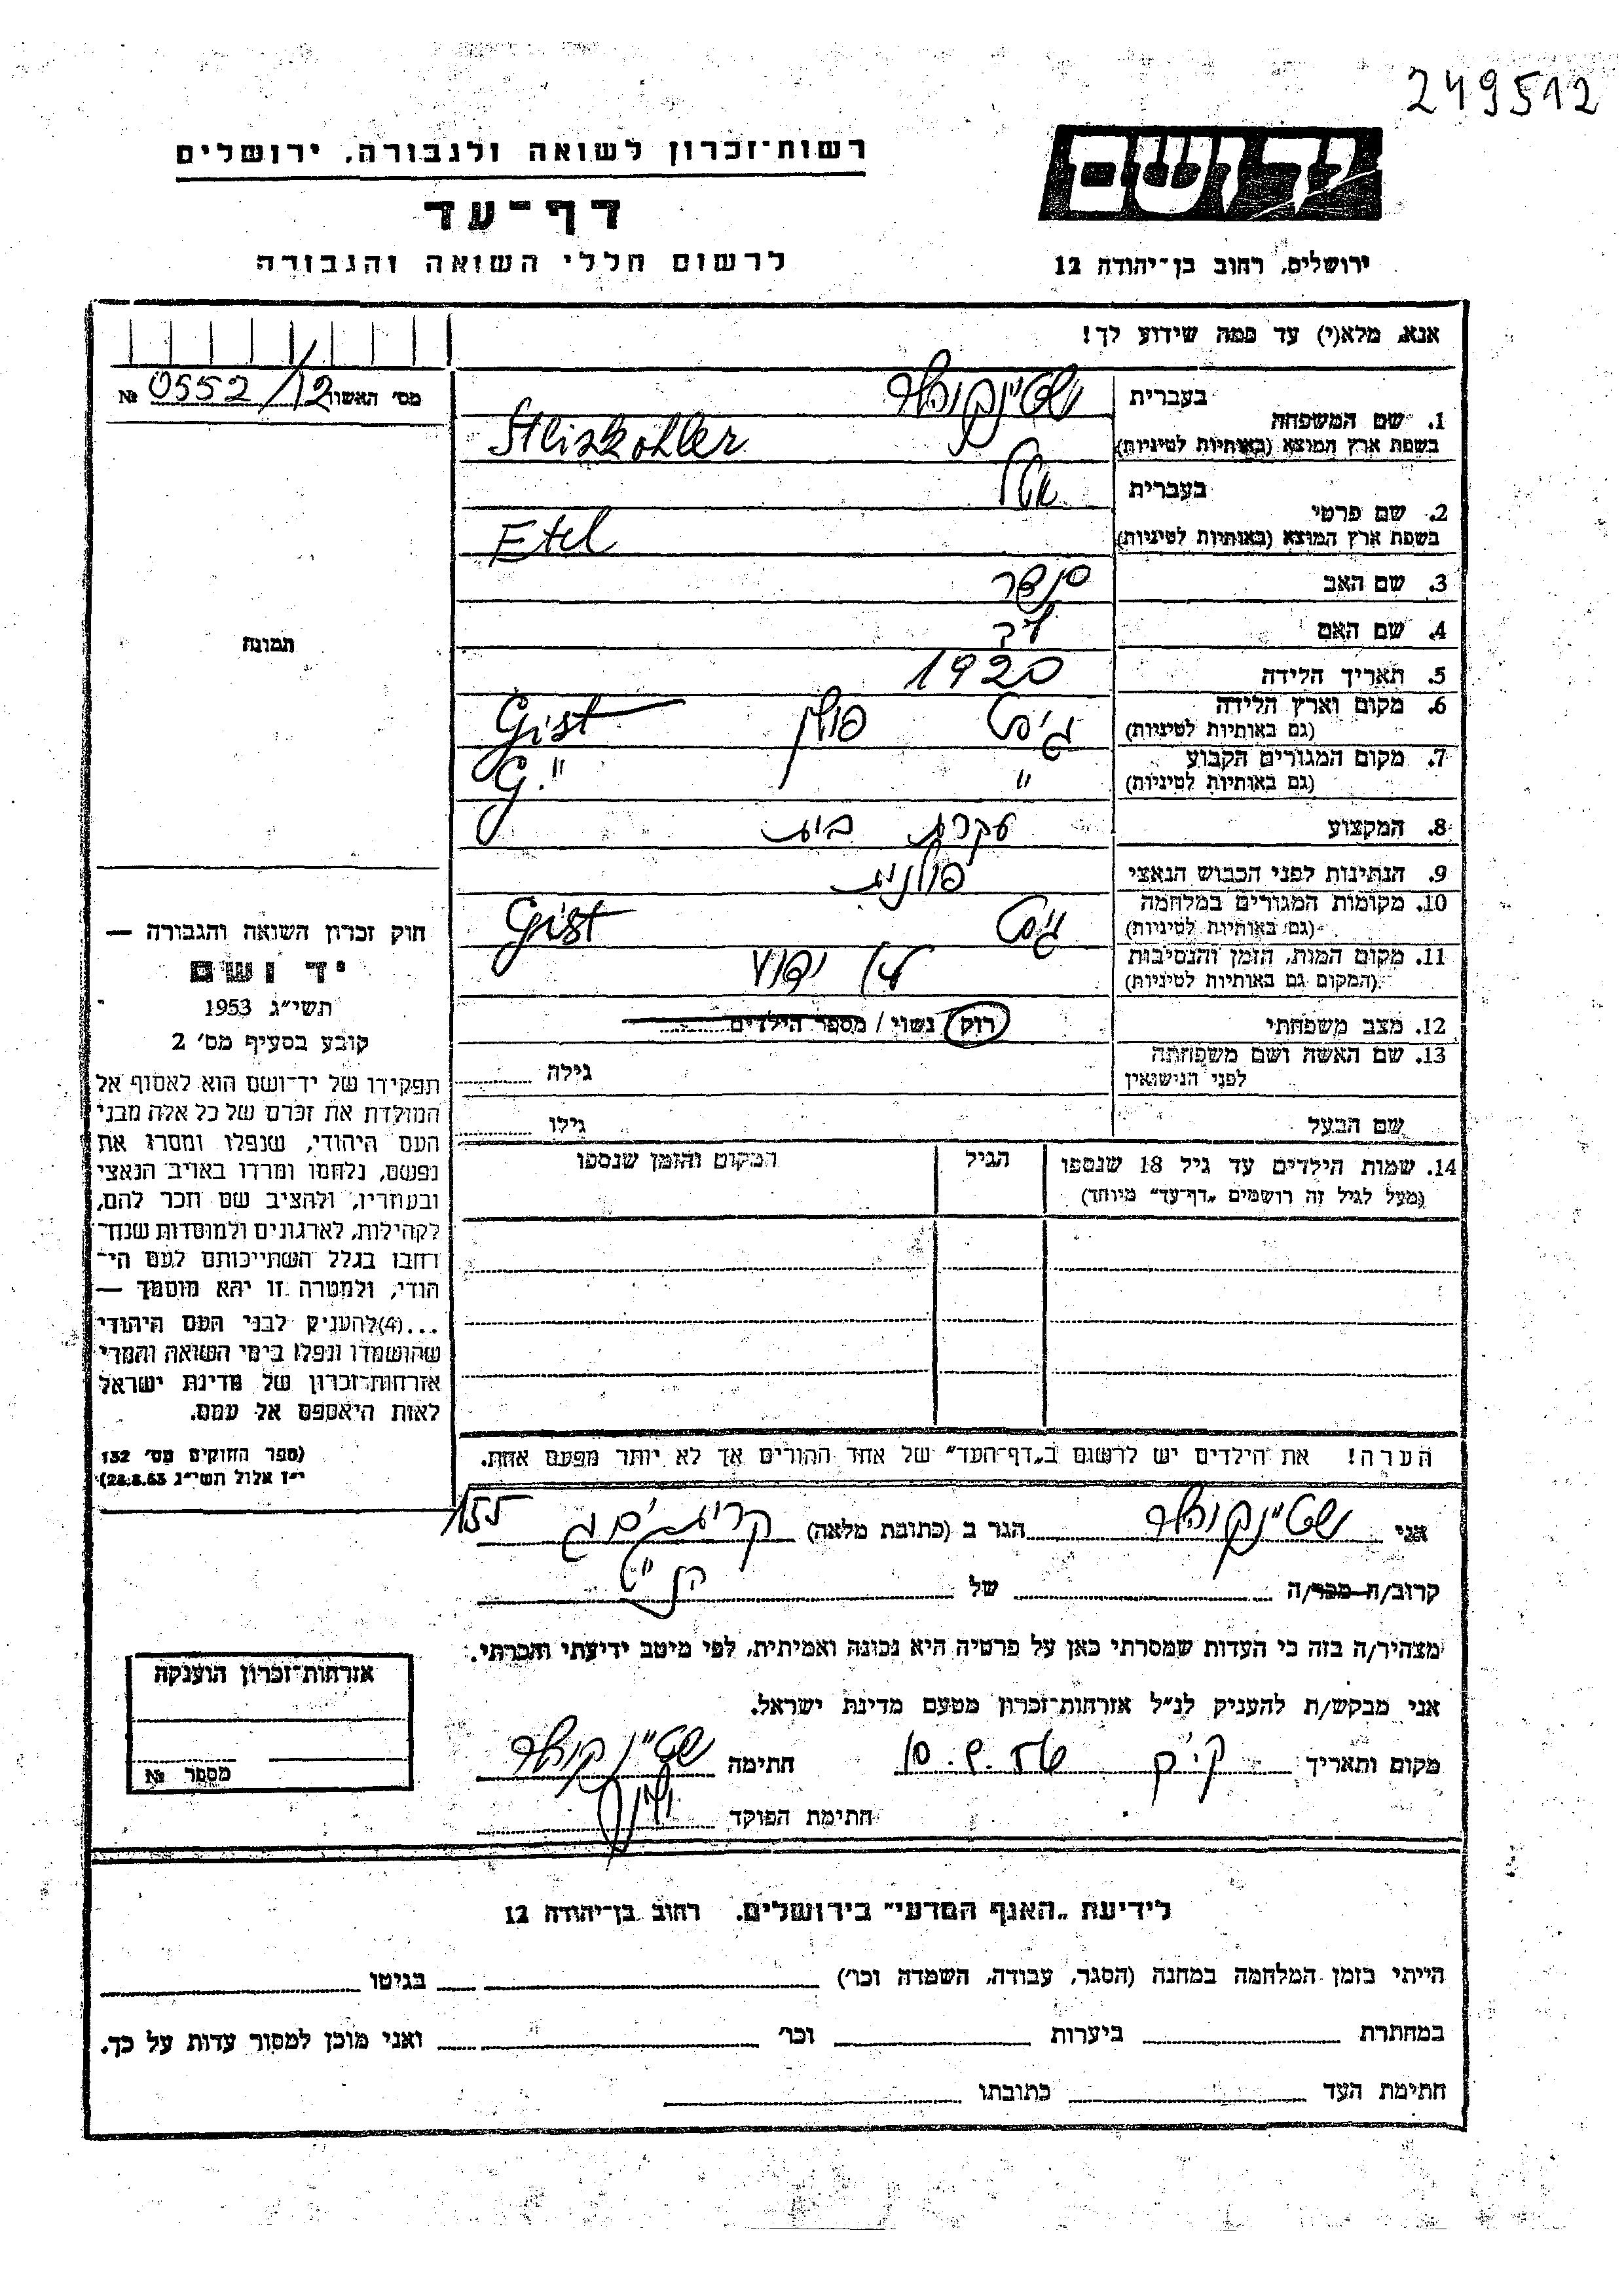 249512
רשות־זכרון לשואה ולגבורה, ירושלים
דף־עד
לרשום חללי השואה והגבורה
ירושלים, רחוב בן־יהודה 12
אנא, מלא(י) עד כמה שידוע לך!
מס' האשור 0552/12 №
1. שם המשפחה בעברית שטיינקוהלר
בשפת ארץ המוצא (באותיות לטיניות)
2. שם פרטי בעברית אטל
בשפת ארץ המוצא (באותיות לטיניות) Etel
3. שם האב
4. שם האם
5. תאריך הלידה 1920
6. מקום וארץ הלידה פולין Gist
(גם באותיות לטיניות)
7. מקום המגורים הקבוע " G. "
(גם באותיות לטיניות)
8. המקצוע עקרת בית
9. הנתינות לפני הכבוש הנאצי פולנית
10. מקומות המגורים במלחמה Gist
(גם באותיות לטיניות)
11. מקום המות, הזמן והנסיבות לא ידוע
(המקום גם באותיות לטיניות)
12. מצב משפחתי רוק / נשוי / מספר הילדים
13. שם האשה ושם משפחתה גילה
לפני הנישואין
שם הבעל גילו
14. שמות הילדים עד גיל 18 שנספו הגיל המקום והזמן שנספו
(מעל לגיל זה רושמים „דף־עד" מיוחד)
הערה! את הילדים יש לרשום ב„דף־העד" של אחד ההורים אך לא יותר מפעם אחת.
תמונה
חוק זכרון השואה והגבורה —
יד ושם
תשי"ג 1953
קובע בסעיף מס' 2
תפקידו של יד־ושם הוא לאסוף אל
המולדת את זכרם של כל אלה מבני
העם היהודי, שנפלו ומסרו את
נפשם, נלחמו ומרדו באויב הנאצי
ובעוזריו, ולהציב שם וזכר להם,
לקהילות, לארגונים ולמוסדות שנח־
רבו בגלל השתייכותם לעם הי־
הודי, ולמטרה זו יהא מוסמך —
...(4) להעניק לבני העם היהודי
שהושמדו ונפלו בימי השואה והמרי
אזרחות־זכרון של מדינת ישראל
לאות היאספם אל עמם.
(ספר החוקים מס' 132
י"ז אלול תשי"ג 28.8.53)
אני שטיינקוהלר הגר ב (כתובת מלאה) 155
קרוב/ה מכר/ה של
מצהיר/ה בזה כי העדות שמסרתי כאן על פרטיה היא נכונה ואמיתית, לפי מיטב ידיעתי והכרתי.
אני מבקש/ת להעניק לנ"ל אזרחות־זכרון מטעם מדינת ישראל.
מקום ותאריך חתימה שטיינקוהלר
חתימת הפוקד
אזרחות־זכרון הוענקה
מספר №
לידיעת „האגף המדעי" בירושלים. רחוב בן־יהודה 12
הייתי בזמן המלחמה במחנה (הסגר, עבודה, השמדה וכו') בגיטו
במחתרת ביערות וכו' ואני מוכן למסור עדות על כך.
חתימת העד כתובתו